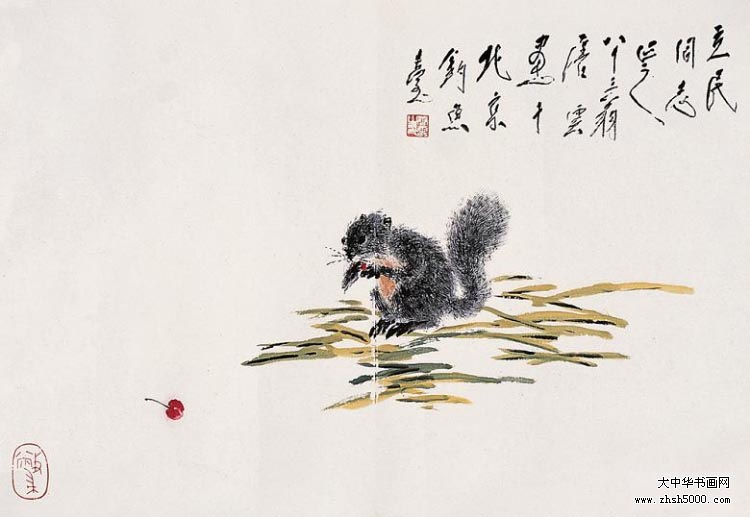 立民
同志
八十三翁
唐雲
畫于
北京
釣魚
臺
大中华书画网
www.zhsh5000.com